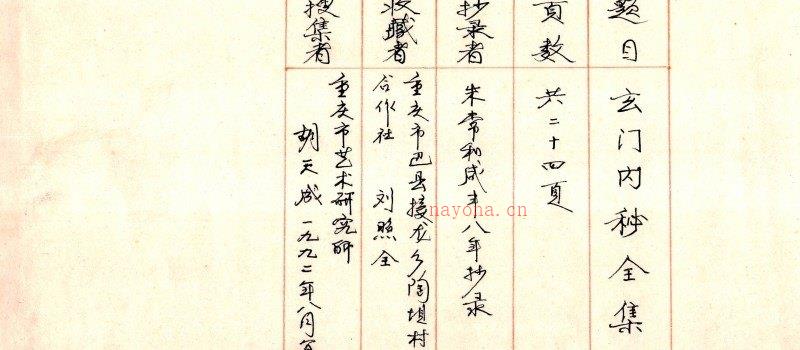 题目 玄门内秘全集
页数 共二十四页
抄录者 朱常和咸丰八年抄录
收藏者 重庆市巴县接龙乡陶坝村
合作社 刘照全
搜集者 重庆市艺术研究所
胡天成 一九九二年八月
nayoha.cn